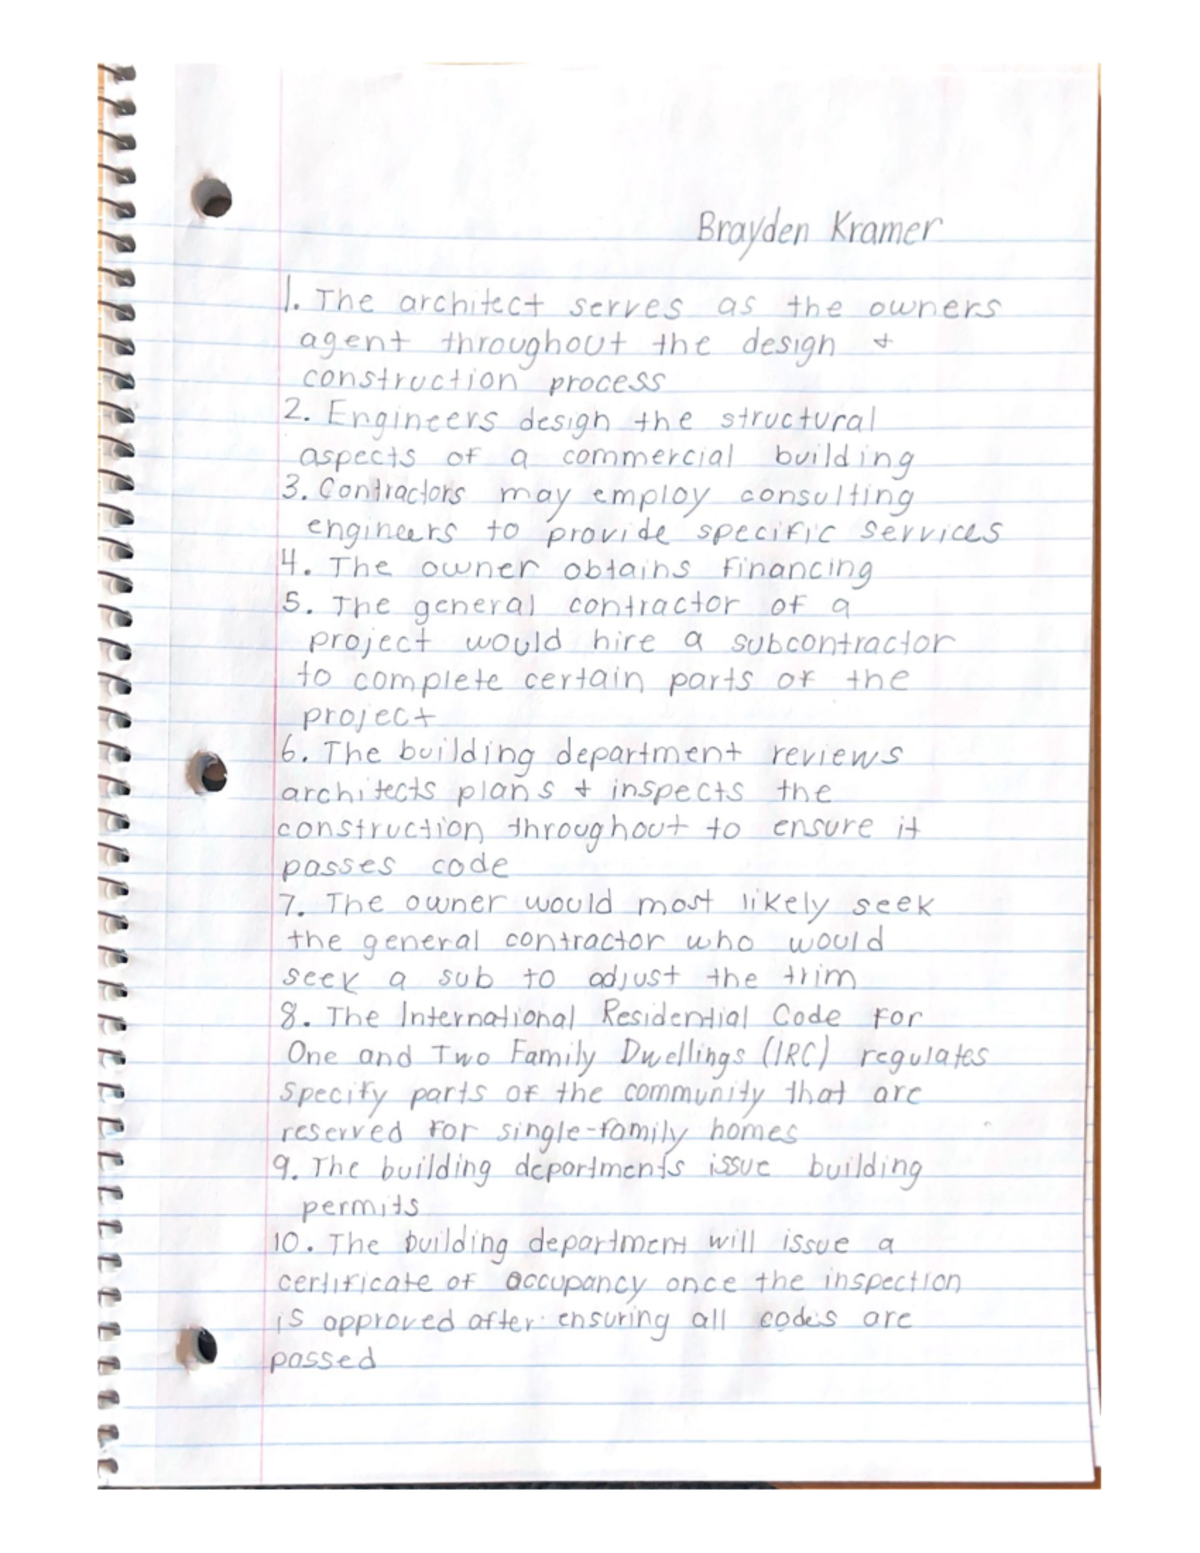 Brayden Kramer
1. The architect serves as the owners
agent throughout the design +
construction process
2. Engineers design the structural
aspects of a commercial building
3. Contractors may employ consulting
engineers to provide specific services
4. The owner obtains financing
5. The general contractor of a
project would hire a subcontractor
to complete certain parts of the
project
6. The building department reviews
architects plans + inspects the
construction throughout to ensure it
passes code
7. The owner would most likely seek
the general contractor who would
seek a sub to adjust the trim
8. The International Residential Code for
One and Two Family Dwellings (IRC) regulates
specify parts of the community that are
reserved for single-family homes
9. The building departments issue building
permits
10. The building department will issue a
certificate of occupancy once the inspection
is approved after ensuring all codes are
passed